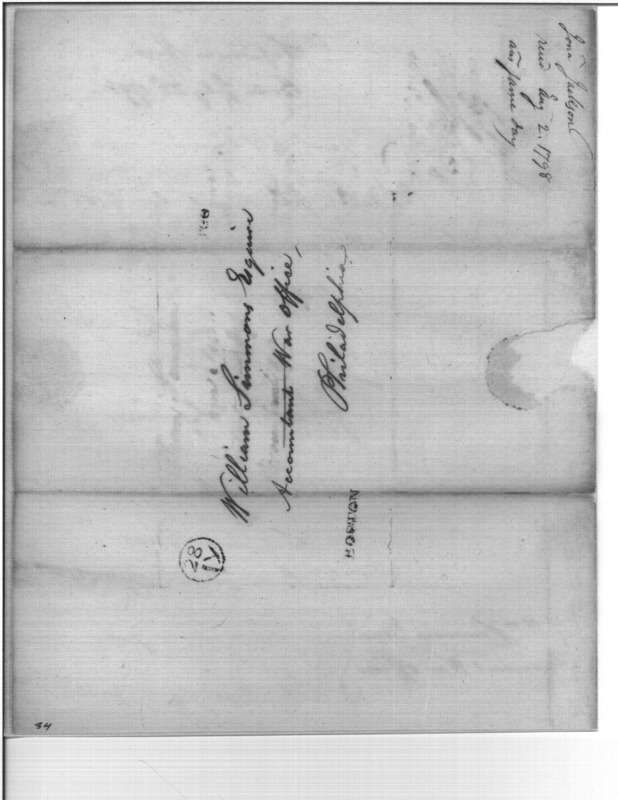 Jona Jackson
recd Aug 2. 1798
ans same day
William Simmons Esquire
Accountant War Office,
Philadelphia
BOSTON
28
IY
34